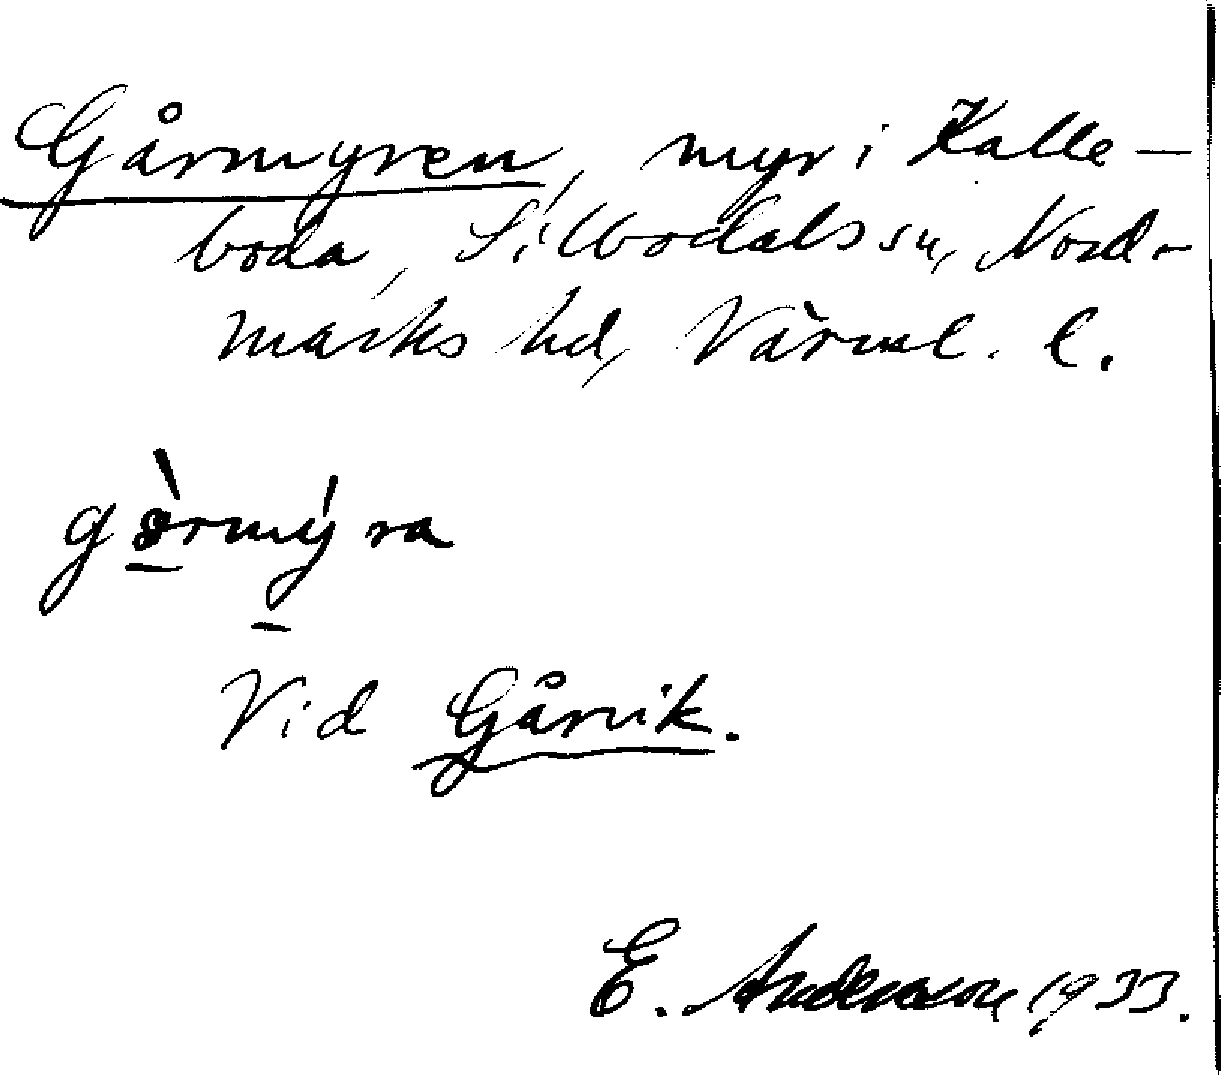 Gårmyren, myr i Kalle-
boda, Silbodals sn, Nord-
marks hd, Värml. l.
gòrmýra
Vid Gårvik.
E. Andersson 1933.